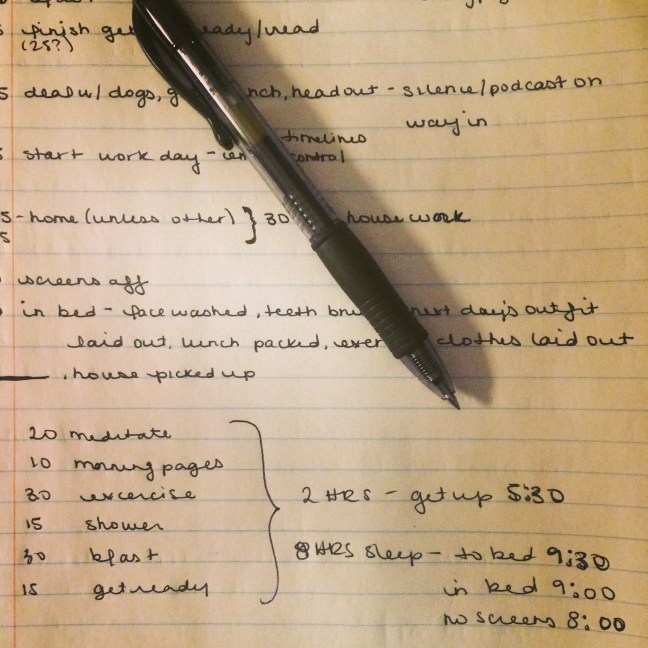 finish ge eady/read
(25?)
5 deal w/ dogs, g nch, head out - silence/podcast on
way in
timelines
5 start work day - control
5 - home (unless other) } 30 house work
5
screens off
in bed - face washed, teeth bru next day's outfit
laid out, lunch packed, exer clothes laid out
, house picked up
20 meditate
10 morning pages
30 excercise
15 shower
30 bfast
15 get ready
2 HRS - get up 5:30
8 HRS sleep - to bed 9:30
in bed 9:00
no screens 8:00